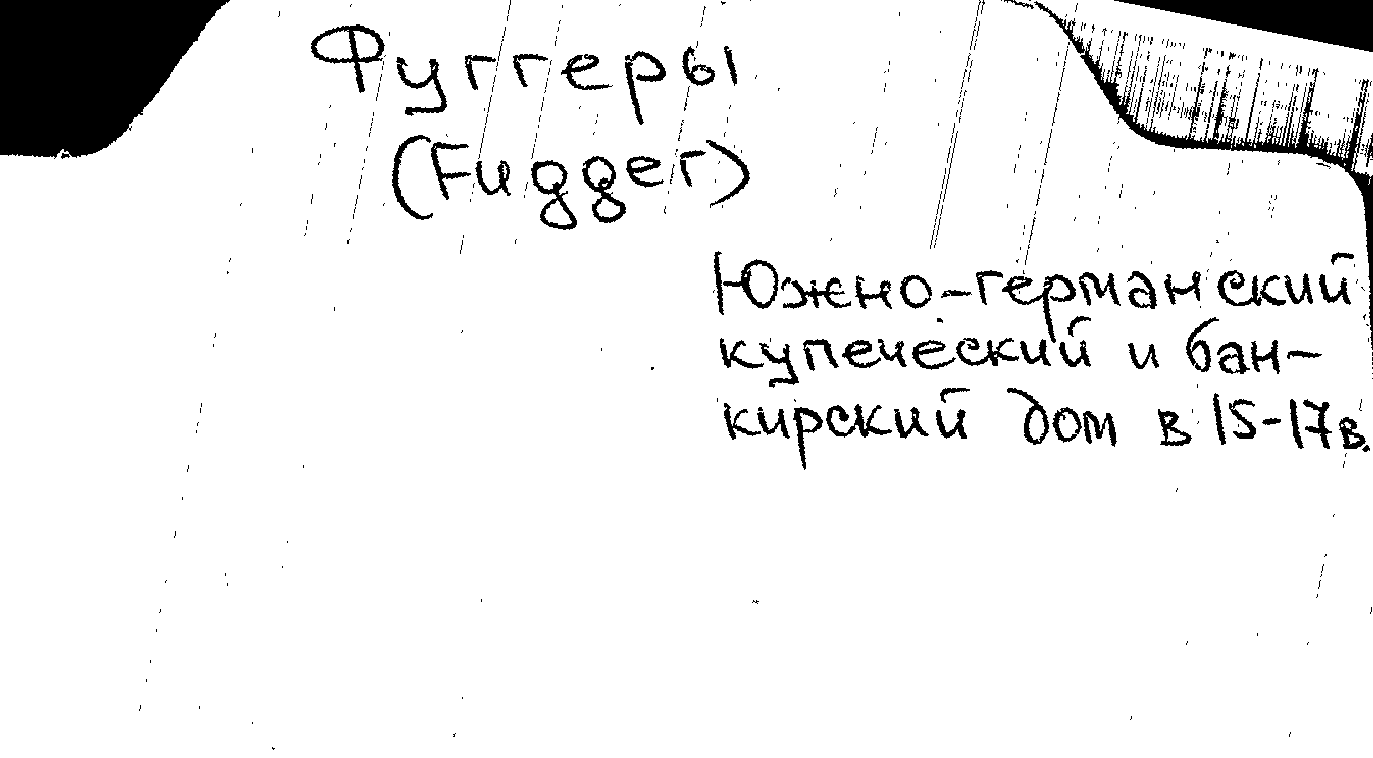 Фуггеры
(Fugger)
Южно-германский
купеческий и бан-
кирский дом в 15-17в.